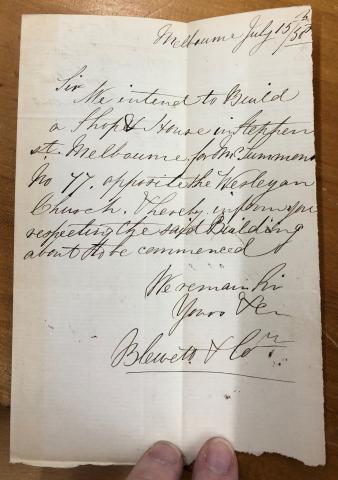 Melbourne July 15th / 58
Sir
We intend to Build
a Shop & House in Stephen
st. Melbourne for Mr
No 77. opposite the Wesleyan
Church. & hereby inform you
respecting the said Building
about to be commenced
We remain Sir
Yours &c
Blewett & Co